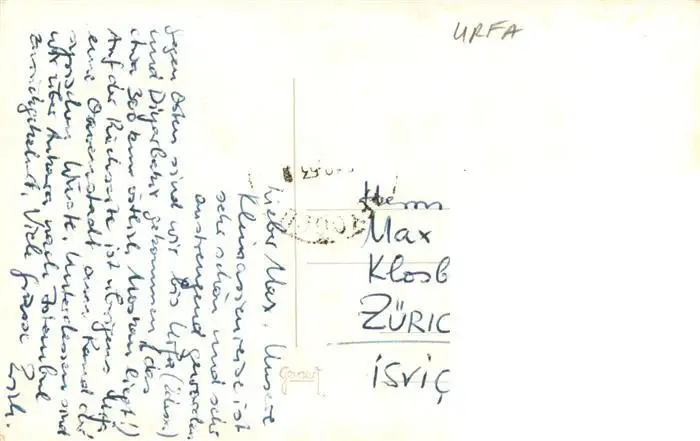 URFA
Lieber Max, Unsere
Kleinasienreise ist
sehr schön und sehr
anstrengend geworden.
Gegen Osten sind wir bis Urfa
und Diyarbakir gekommen, das
etwa 300 km östlich liegt!)
Auf der Rückseite ist übrigens
eine Oasenstadt am Rand der
syrischen Wüste. Unterdessen sind
wir über Ankara nach Istanbul
zurückgekehrt. Viele Grüsse
Herrn
Max
Klosb
ZÜRIC
isviç